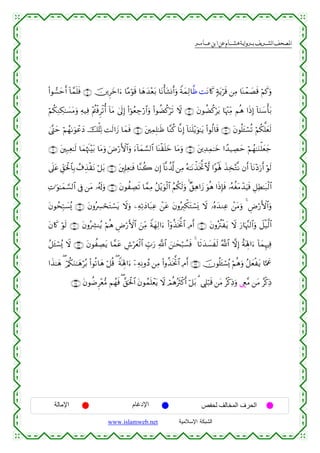 المصحف الشريف برواية هشام عن ابن عامر
وَكَمْ قَصَمْنَا مِن قَرْيَةٍ كَانَت ظَّالِمَةً وَأَنشَأْنَا بَعْدَهَا قَوْمًا ءَاخَرِينَ ۝ فَلَمَّآ أَحَسُّوا۟
بَأْسَنَآ إِذَا هُم مِّنْهَا يَرْكُضُونَ ۝ لَا تَرْكُضُوا۟ وَٱرْجِعُوٓا۟ إِلَىٰ مَآ أُتْرِفْتُمْ فِيهِ وَمَسَٰكِنِكُمْ
لَعَلَّكُمْ تُسْـَٔلُونَ ۝ قَالُوا۟ يَٰوَيْلَنَآ إِنَّا كُنَّا ظَٰلِمِينَ ۝ فَمَا زَالَت تِّلْكَ دَعْوَىٰهُمْ حَتَّىٰ
جَعَلْنَٰهُمْ حَصِيدًا خَٰمِدِينَ ۝ وَمَا خَلَقْنَا ٱلسَّمَآءَ وَٱلْأَرْضَ وَمَا بَيْنَهُمَا لَٰعِبِينَ ۝
لَوْ أَرَدْنَآ أَن نَّتَّخِذَ لَهْوًا لَّٱتَّخَذْنَٰهُ مِن لَّدُنَّآ إِن كُنَّا فَٰعِلِينَ ۝ بَلْ نَقْذِفُ بِٱلْحَقِّ عَلَى
ٱلْبَٰطِلِ فَيَدْمَغُهُۥ فَإِذَا هُوَ زَاهِقٌ ۚ وَلَكُمُ ٱلْوَيْلُ مِمَّا تَصِفُونَ ۝ وَلَهُۥ مَن فِى ٱلسَّمَٰوَٰتِ
وَٱلْأَرْضِ ۚ وَمَنْ عِندَهُۥ لَا يَسْتَكْبِرُونَ عَنْ عِبَادَتِهِۦ وَلَا يَسْتَحْسِرُونَ ۝ يُسَبِّحُونَ
ٱلَّيْلَ وَٱلنَّهَارَ لَا يَفْتُرُونَ ۝ أَمِ ٱتَّخَذُوٓا۟ ءَالِهَةً مِّنَ ٱلْأَرْضِ هُمْ يُنشِرُونَ ۝ لَوْ كَانَ
فِيهِمَآ ءَالِهَةٌ إِلَّا ٱللَّهُ لَفَسَدَتَا ۚ فَسُبْحَٰنَ ٱللَّهِ رَبِّ ٱلْعَرْشِ عَمَّا يَصِفُونَ ۝ لَا يُسْـَٔلُ
عَمَّا يَفْعَلُ وَهُمْ يُسْـَٔلُونَ ۝ أَمِ ٱتَّخَذُوا۟ مِن دُونِهِۦٓ ءَالِهَةً ۖ قُلْ هَاتُوا۟ بُرْهَٰنَكُمْ ۖ هَٰذَا
ذِكْرُ مَن مَّعِى وَذِكْرُ مَن قَبْلِى ۗ بَلْ أَكْثَرُهُمْ لَا يَعْلَمُونَ ٱلْحَقَّ ۖ فَهُم مُّعْرِضُونَ ۝
الحرف المخالف لحفص الإدغام الإمالة
الشبكة الإسلامية www.islamweb.net